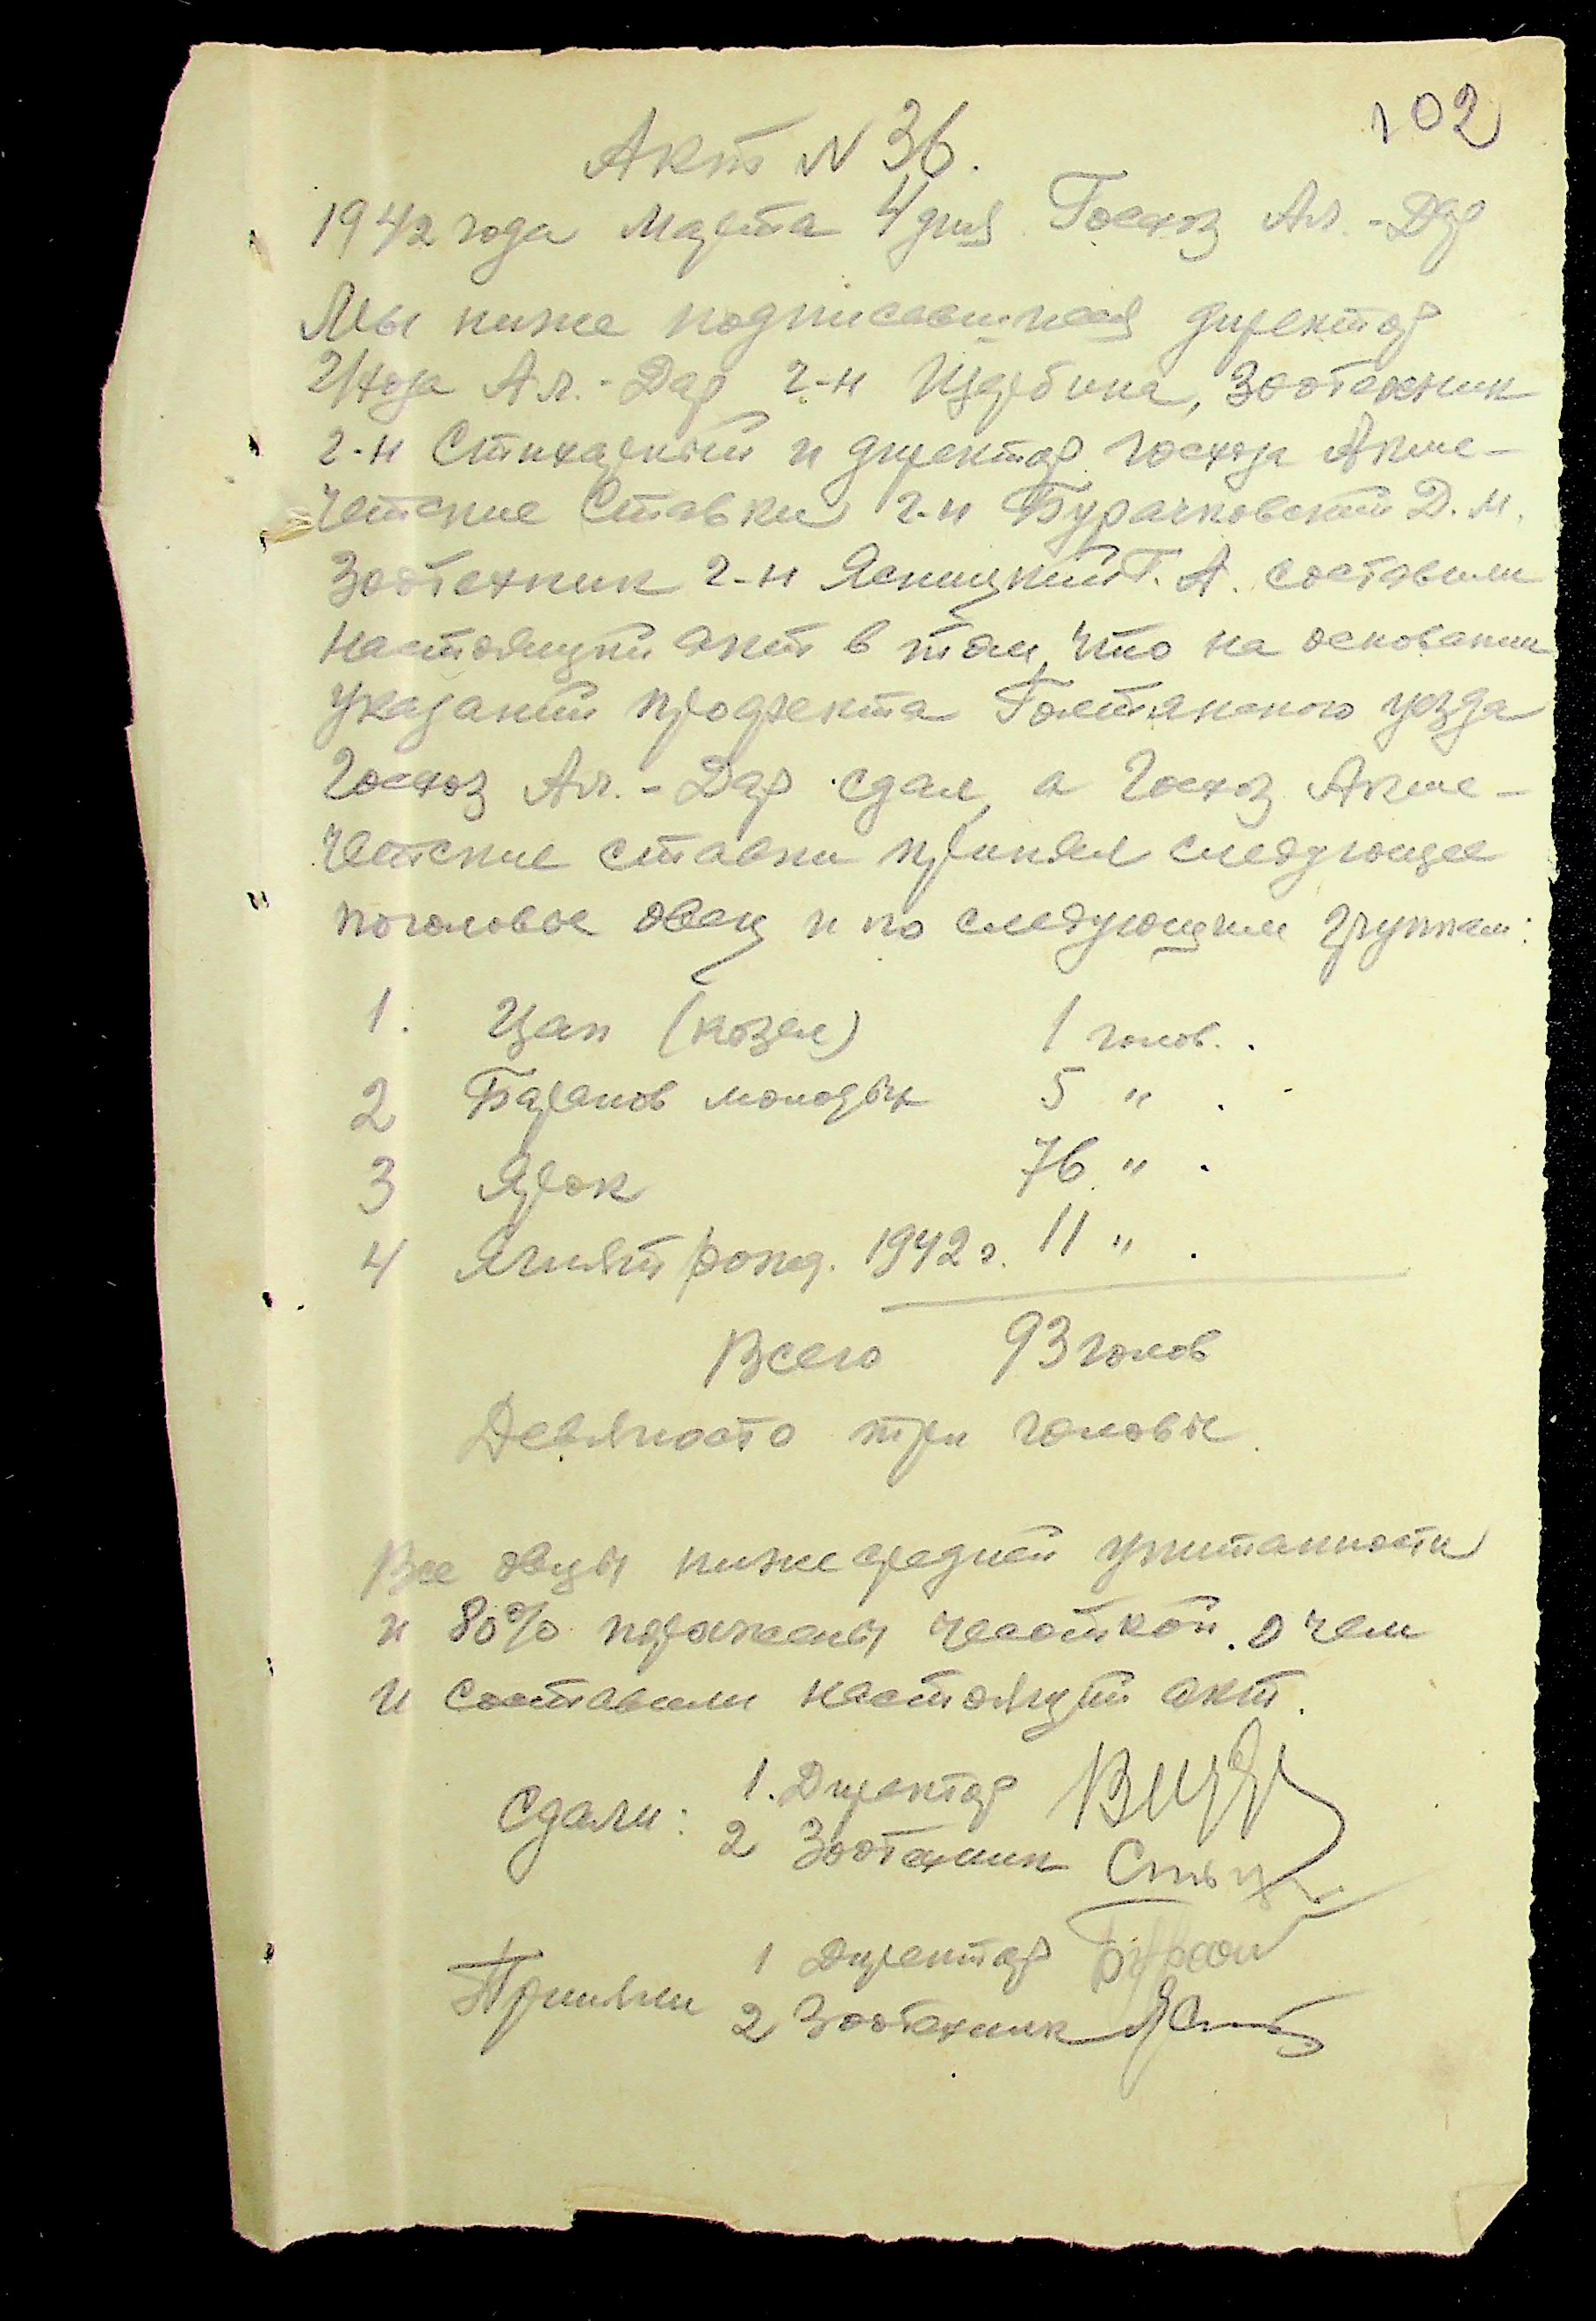 102
Акт N 36.
1942 года Марта 4 дня Госхоз Ал.-Дар
Мы ниже подписавшиеся директор
г/хоза Ал.-Дар г-н Щербина, Зоотехник
г-н Стихарный и директор госхоза Акме-
четские Ставки г-н Бурачковский Д. М.
Зоотехник г-н Ясницкий Г. А. составили
настоящий акт в том, что на основании
указаний профекта Голтянского уезда
Госхоз Ал.-Дар сдал, а Госхоз Акме-
четские ставки принял следующее
поголовье овец и по следующим группам:
1. Цап (козел) 1 голов.
2 Баранов молодых 5 "
3 Ярок 76 "
4 Ягнят рожд. 1942 г. 11 "
Всего 93 голов
Девяносто три головы.
Все овцы ниже средней упитанности
и 80% поражены чесоткой. о чем
и составили настоящий акт.
Сдали: 1. Директор
2 Зоотехник
Приняли 1 Директор
2 Зоотехник